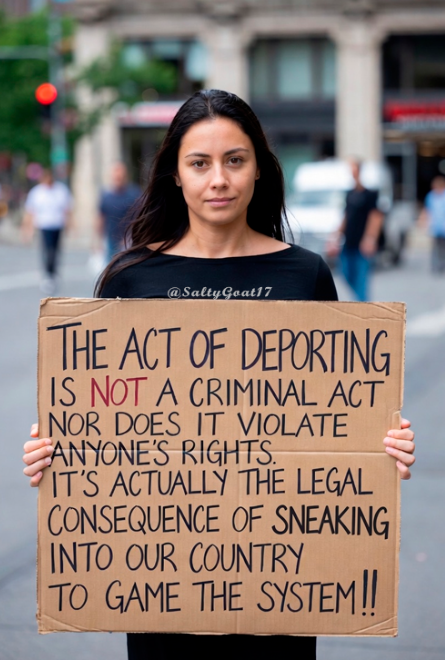 @SaltyGoat17
THE ACT OF DEPORTING
IS NOT A CRIMINAL ACT
NOR DOES IT VIOLATE
ANYONE'S RIGHTS.
IT'S ACTUALLY THE LEGAL
CONSEQUENCE OF SNEAKING
INTO OUR COUNTRY
TO GAME THE SYSTEM!!